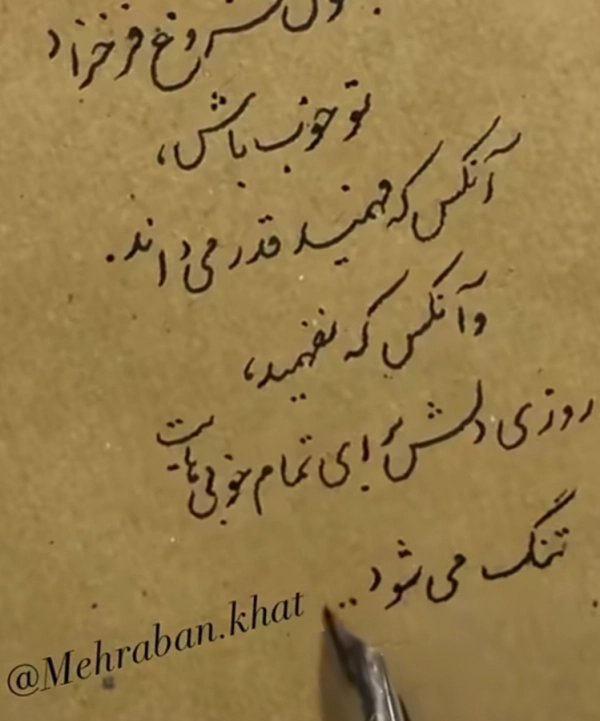 بقول فروغ فرخزاد
تو خوب باش،
آنکس که فهمید قدر می داند.
و آنکس که نفهمید،
روزی دلش برای تمام خوبی هایت
تنگ می شود...
@Mehraban.khat